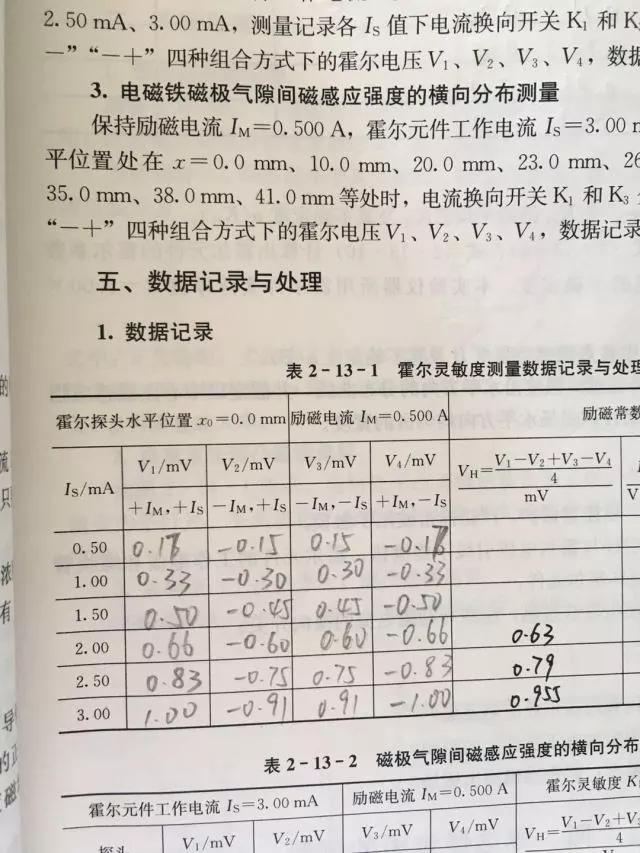 2.50 mA、3.00 mA,测量记录各 IS 值下电流换向开关 K1 和 K
一”“一十”四种组合方式下的霍尔电压V1、V2、V3、V4,数据
3. 电磁铁磁极气隙间磁感应强度的横向分布测量
保持励磁电流 IM=0.500 A,霍尔元件工作电流 IS=3.00
平位置处在 x=0.0 mm、10.0 mm、20.0 mm、23.0 mm、26
35.0 mm、38.0 mm、41.0 mm 等处时,电流换向开关 K1 和 K3
“一十”四种组合方式下的霍尔电压V1、V2、V3、V4,数据记录
五、数据记录与处理
1. 数据记录
表 2-13-1 霍尔灵敏度测量数据记录与处理
霍尔探头水平位置 x0=0.0 mm 励磁电流 IM=0.500 A 励磁常数
IS/mA V1/mV V2/mV V3/mV V4/mV VH=(V1-V2+V3-V4)/4 mV
+IM,+IS -IM,+IS -IM,-IS +IM,-IS
0.50 0.15 -0.15 0.15
1.00 0.33 -0.30 0.30 -0.33
1.50 0.50 -0.45 0.45 -0.50
2.00 0.66 -0.60 0.60 -0.66 0.63
2.50 0.83 -0.75 0.75 -0.83 0.79
3.00 1.00 -0.91 0.91 -1.00 0.955
表 2-13-2 磁极气隙间磁感应强度的横向分布
霍尔元件工作电流 IS=3.00 mA 励磁电流 IM=0.500 A 霍尔灵敏度 K
探头 V1/mV V2/mV V3/mV V4/mV VH=(V1-V2+V3